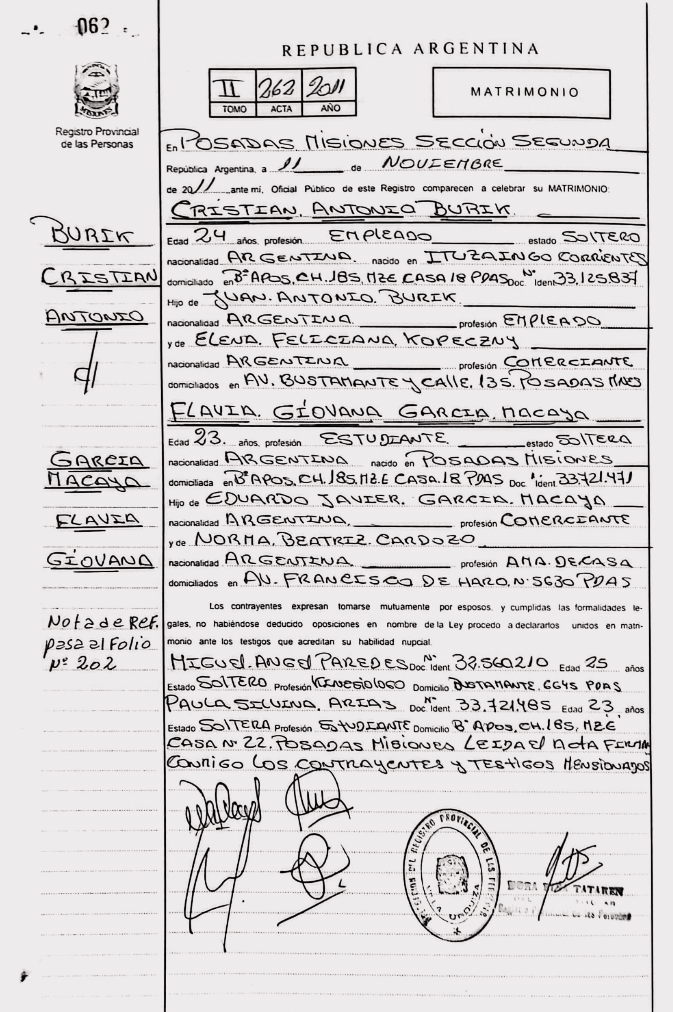 062
REPUBLICA ARGENTINA
II 262 2011
TOMO ACTA AÑO
MATRIMONIO
MISIONES
Registro Provincial
de las Personas
En POSADAS, MISIONES SECCIÓN SEGUNDA
República Argentina, a 11 de NOVIEMBRE
de 2011 ante mí, Oficial Público de este Registro comparecen a celebrar su MATRIMONIO:
CRISTIAN, ANTONIO BURIK.
BURIK
CRISTIAN
ANTONIO
Edad 24 años, profesión EMPLEADO estado SOLTERO
nacionalidad ARGENTINA. nacido en ITUZAINGO CORRIENTES
domiciliado en Bº APOS, CH. 185, MZE CASA 18 PDAS Doc. Nº Ident. 33,125,837
Hijo de JUAN. ANTONIO. BURIK.
nacionalidad ARGENTINA profesión EMPLEADO
y de ELENA. FELICIANA, KOPECZNY
nacionalidad ARGENTINA profesión COMERCIANTE
domiciliados en AV. BUSTAMANTE Y CALLE, 135. POSADAS MNES
FLAVIA. GÍOVANA GARCIA. MACAYA
GARCIA
MACAYA
FLAVIA
GÍOVANA
Edad 23. años, profesión ESTUDIANTE estado SOLTERA
nacionalidad ARGENTINA nacido en POSADAS MISIONES
domiciliada en Bº APOS, CH. 185, MZ.E CASA. 18 PDAS Doc. Nº Ident. 33.721.471
Hijo de EDUARDO JAVIER. GARCIA. MACAYA
nacionalidad ARGENTINA, profesión COMERCIANTE
y de NORMA. BEATRIZ. CARDOZO
nacionalidad ARGENTINA profesión AMA. DE CASA
domiciliados en AV. FRANCISCO DE HARO, Nº 5630 PDAS
Nota de REF.
pasa al Folio
Nº 202
Los contrayentes expresan tomarse mutuamente por esposos, y cumplidas las formalidades le-
gales, no habiéndose deducido oposiciones en nombre de la Ley procedo a declararlos unidos en matri-
monio ante los testigos que acreditan su habilidad nupcial.
MIGUEL. ANGEL PAREDES Doc. Nº Ident. 32.560.210 Edad 25 años
Estado SOLTERO Profesión KINESIOLOGO Domicilio BUSTAMANTE. 6645 PDAS
PAULA SILVINA, ARIAS Doc. Nº Ident. 33.721.485 Edad 23 años
Estado SOLTERA Profesión ESTUDIANTE Domicilio Bº APOS, CH. 185, MZE
CASA Nº 22, POSADAS MISIONES LEIDA El ACTA FIRMAN
CONMIGO LOS CONTRAYENTES Y TESTIGOS MENSIONADOS
DEL REGISTRO PROVINCIAL DE LAS PERSONAS
VILLA URQUIZA
TATAREN